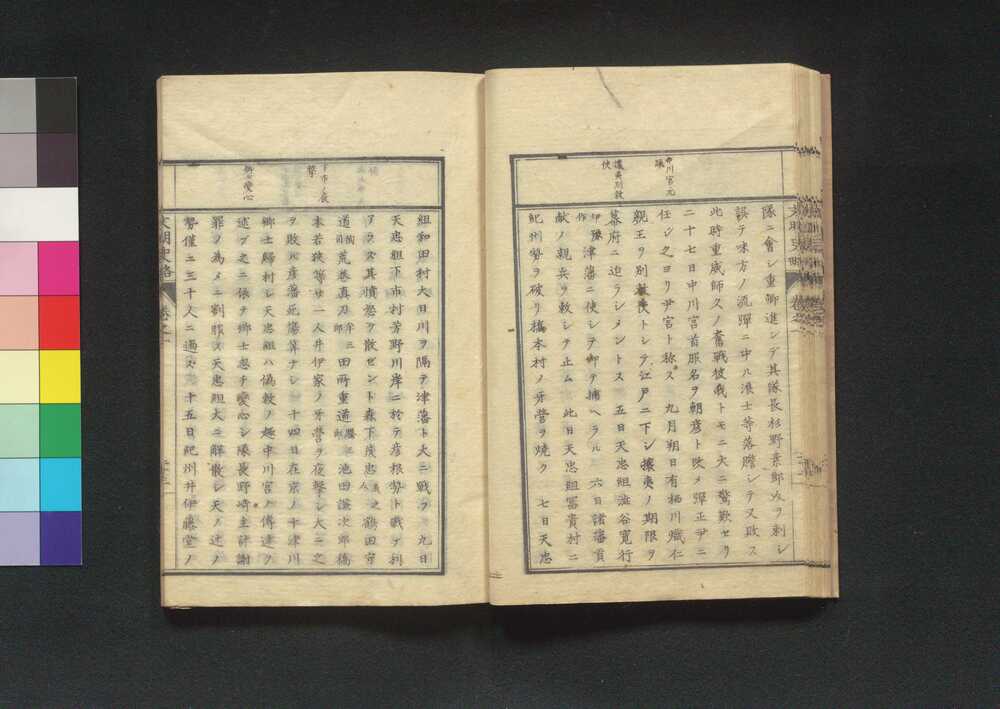 中川宮元
服
攘夷別敕
使
隊ニ會シ重卿進ンデ其隊長杉野素郎次ヲ刺シ
誤テ味方ノ流彈ニ中ル浪士等落膽シテ又敗ス
此時重威師久ノ奮戰彼我トモニ大ニ驚歎セリ
二十七日中川宮首服名ヲ朝彦ト改メ彈正尹ニ
任シ之ヨリ尹宮ト称ス 九月朔日有栖川熾仁
親王ヲ別敕使トシテ江戸ニ下シ攘夷ノ期限ヲ
幕府ニ迫ラシメントス 五日天忠組澁谷寛行
伊豫作 津藩ニ使シテ却テ捕ヘラル 六日諸藩貢
献ノ親兵ヲ敕シテ止ム 此日天忠組冨貴村ニ
紀州勢ヲ破リ橋本村ノ牙營ヲ焼ク 七日天忠
下市ノ夜
撃
郷士變心
組和田村大日川ヲ隔テ津藩ト大ニ戰フ 九日
天忠組下市村芳野川岸ニ於テ彦根勢ト戰テ利
アラズ其憤怒ヲ散ゼント森下茂忠 鶴田守
道 荒巻真刀 半三郎 田所重道 池田謙次郎橋
本若狭等廿一人井伊家ノ牙營ヲ夜撃シ大ニ之
ヲ敗ル彦藩死傷算ナシ 十四日在京ノ十津川
郷士歸村シ天忠組ハ偽敕ノ趣中川宮ノ傳達ヲ
述ブ之ニ依テ郷士忽チ變心シ隊長野崎主計謝
罪ノ為メニ割腹ス天忠組大ニ解散シ天ノ辻ノ
勢僅ニ三十人ニ過ズ 十五日紀州井伊藤堂ノ